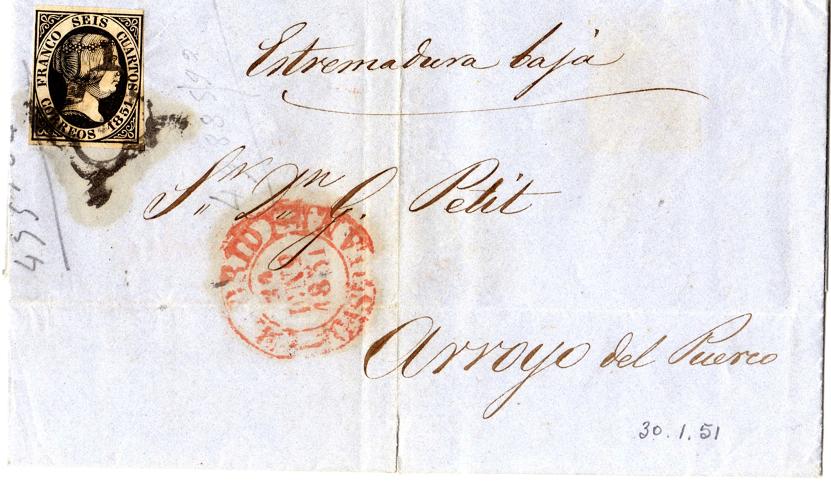 FRANCO SEIS CUARTOS
CORREOS 1851
Estremadura baja
Sr. Dn. G. Petit
Arroyo del Puerco
30.1.51